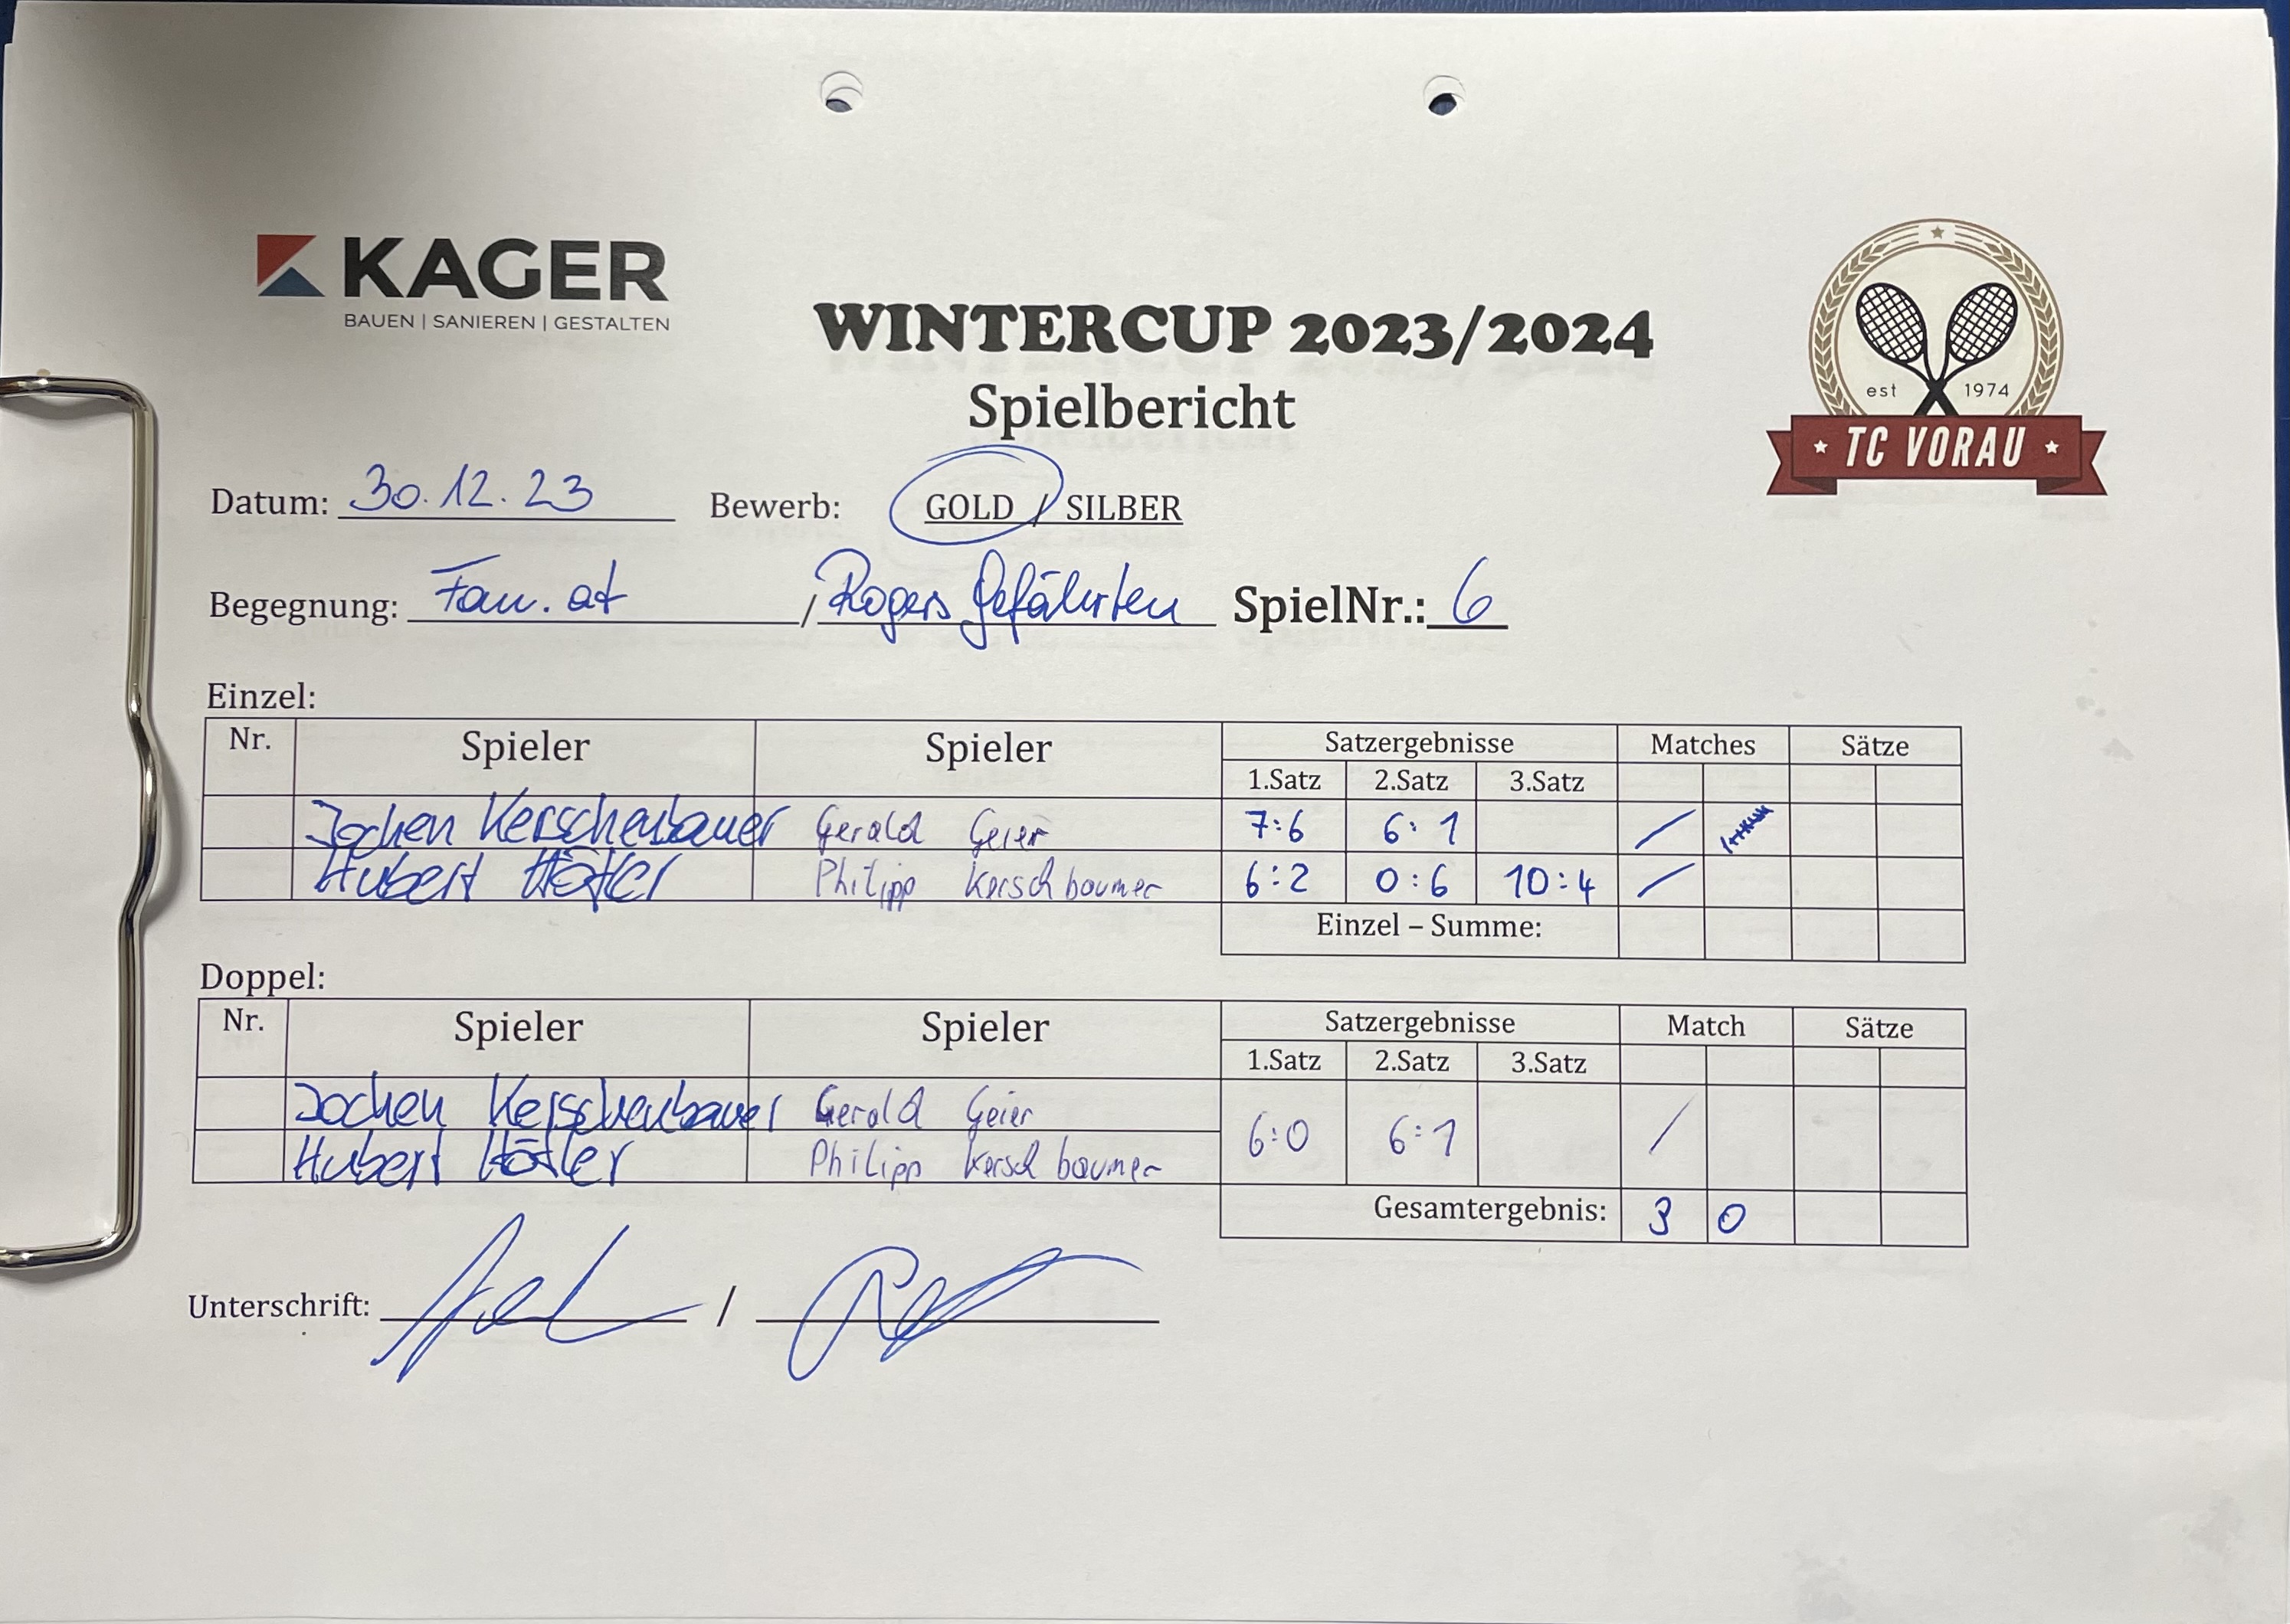 KAGER
BAUEN | SANIEREN | GESTALTEN
WINTERCUP 2023/2024
Spielbericht
est 1974
TC VORAU
Datum: 30.12.23 Bewerb: GOLD / SILBER
Begegnung: Fam. at / Rogers Gefährten SpielNr.: 6
Einzel:
Nr. Spieler Spieler Satzergebnisse Matches Sätze
1.Satz 2.Satz 3.Satz
Jochen Kerschenbauer Gerald Geier 7:6 6:1 /
Hubert Höfler Philipp Kerschbaumer 6:2 0:6 10:4 /
Einzel – Summe:
Doppel:
Nr. Spieler Spieler Satzergebnisse Match Sätze
1.Satz 2.Satz 3.Satz
Jochen Kerschenbauer Gerald Geier 6:0 6:1 /
Hubert Höfler Philipp Kerschbaumer
Gesamtergebnis: 3 0
Unterschrift: /